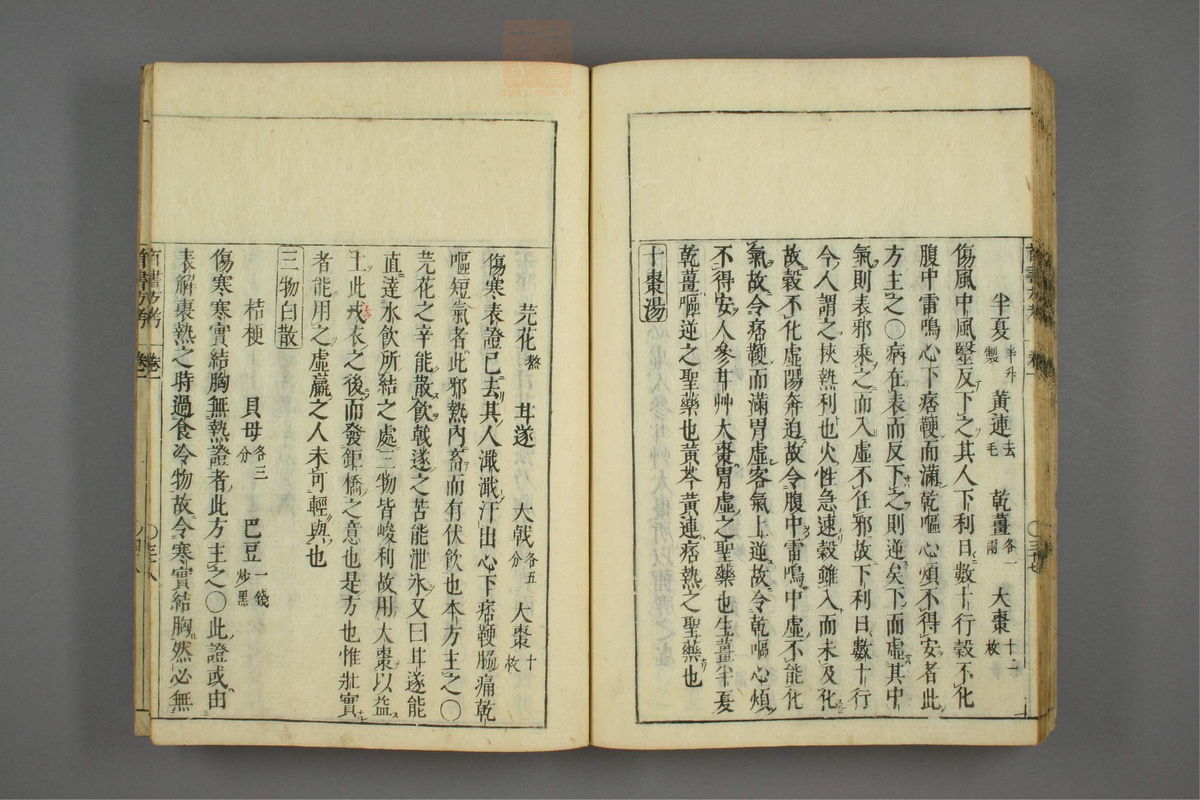 半夏半升製 黄連去毛 乾薑各一兩 大棗十二枚
傷風中風醫反下之其人下利日數十行穀不化
腹中雷鳴心下痞鞕而滿乾嘔心煩不得安者此
方主之〇病在表而反下之則逆矣下而虛其中
氣則表邪乘之而入虛不任邪故下利日數十行
今人謂之挾熱利也火性急速穀雖入而未及化
故穀不化虛陽奔迫故令腹中雷鳴中虛不能化
氣故令痞鞕而滿胃虛客氣上逆故令乾嘔心煩
不得安人參甘艸大棗胃虛之聖藥也生薑半夏
乾薑嘔逆之聖藥也黄芩黄連痞熱之聖藥也
十棗湯
芫花熬 甘遂 大戟各五分 大棗十枚
傷寒表證已去其人濈濈汗出心下痞鞕脇痛乾
嘔短氣者此邪熱內畜而有伏飲也本方主之〇
芫花之辛能散飲戟遂之苦能泄水又曰甘遂能
直達水飲所結之處三物皆峻利故用大棗以益
土此戎衣之後而發鉅橋之意也是方也惟壯實
者能用之虛羸之人未可輕與也
三物白散
桔梗 貝母各三分 巴豆一錢炒黑
傷寒寒實結胸無熱證者此方主之〇此證或由
表解裏熱之時過食冷物故令寒實結胸然必無